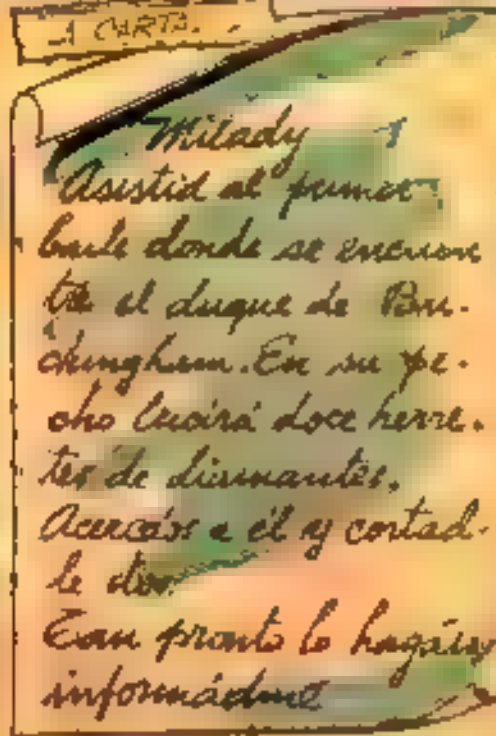 LA CARTA.
Milady
Asistid al primer
baile donde se encuen
tre el duque de Bu-
ckingham. En su pe-
cho lucirá doce herre-
tes de diamantes.
Acercáos a él y cortad-
le dos.
Tan pronto lo hagáis
informádme